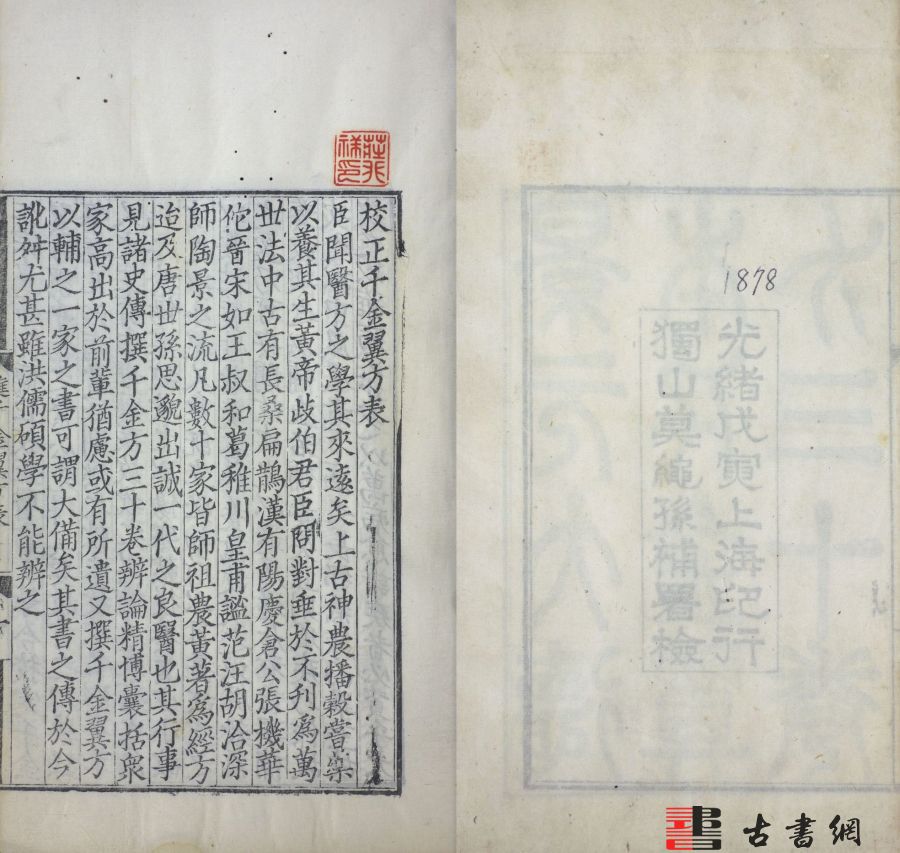 1878
光緒戊寅上海印行
獨山莫繩孫補署檢
校正千金翼方表
臣聞醫方之學其來遠矣上古神農播穀嘗藥
以養其生黃帝歧伯君臣問對垂於不刋為萬
世法中古有長桑扁鵲漢有陽慶倉公張機華
佗晉宋如王叔和葛稚川皇甫謐范汪胡洽深
師陶景之流凡數十家皆師祖農黃著為經方
迨及唐世孫思邈出誠一代之良醫也其行事
見諸史傳撰千金方三十卷辨論精博囊括衆
家高出於前輩猶慮或有所遺又撰千金翼方
以輔之一家之書可謂大備矣其書之傳於今
訛舛尤甚雖洪儒碩學不能辨之
古書網